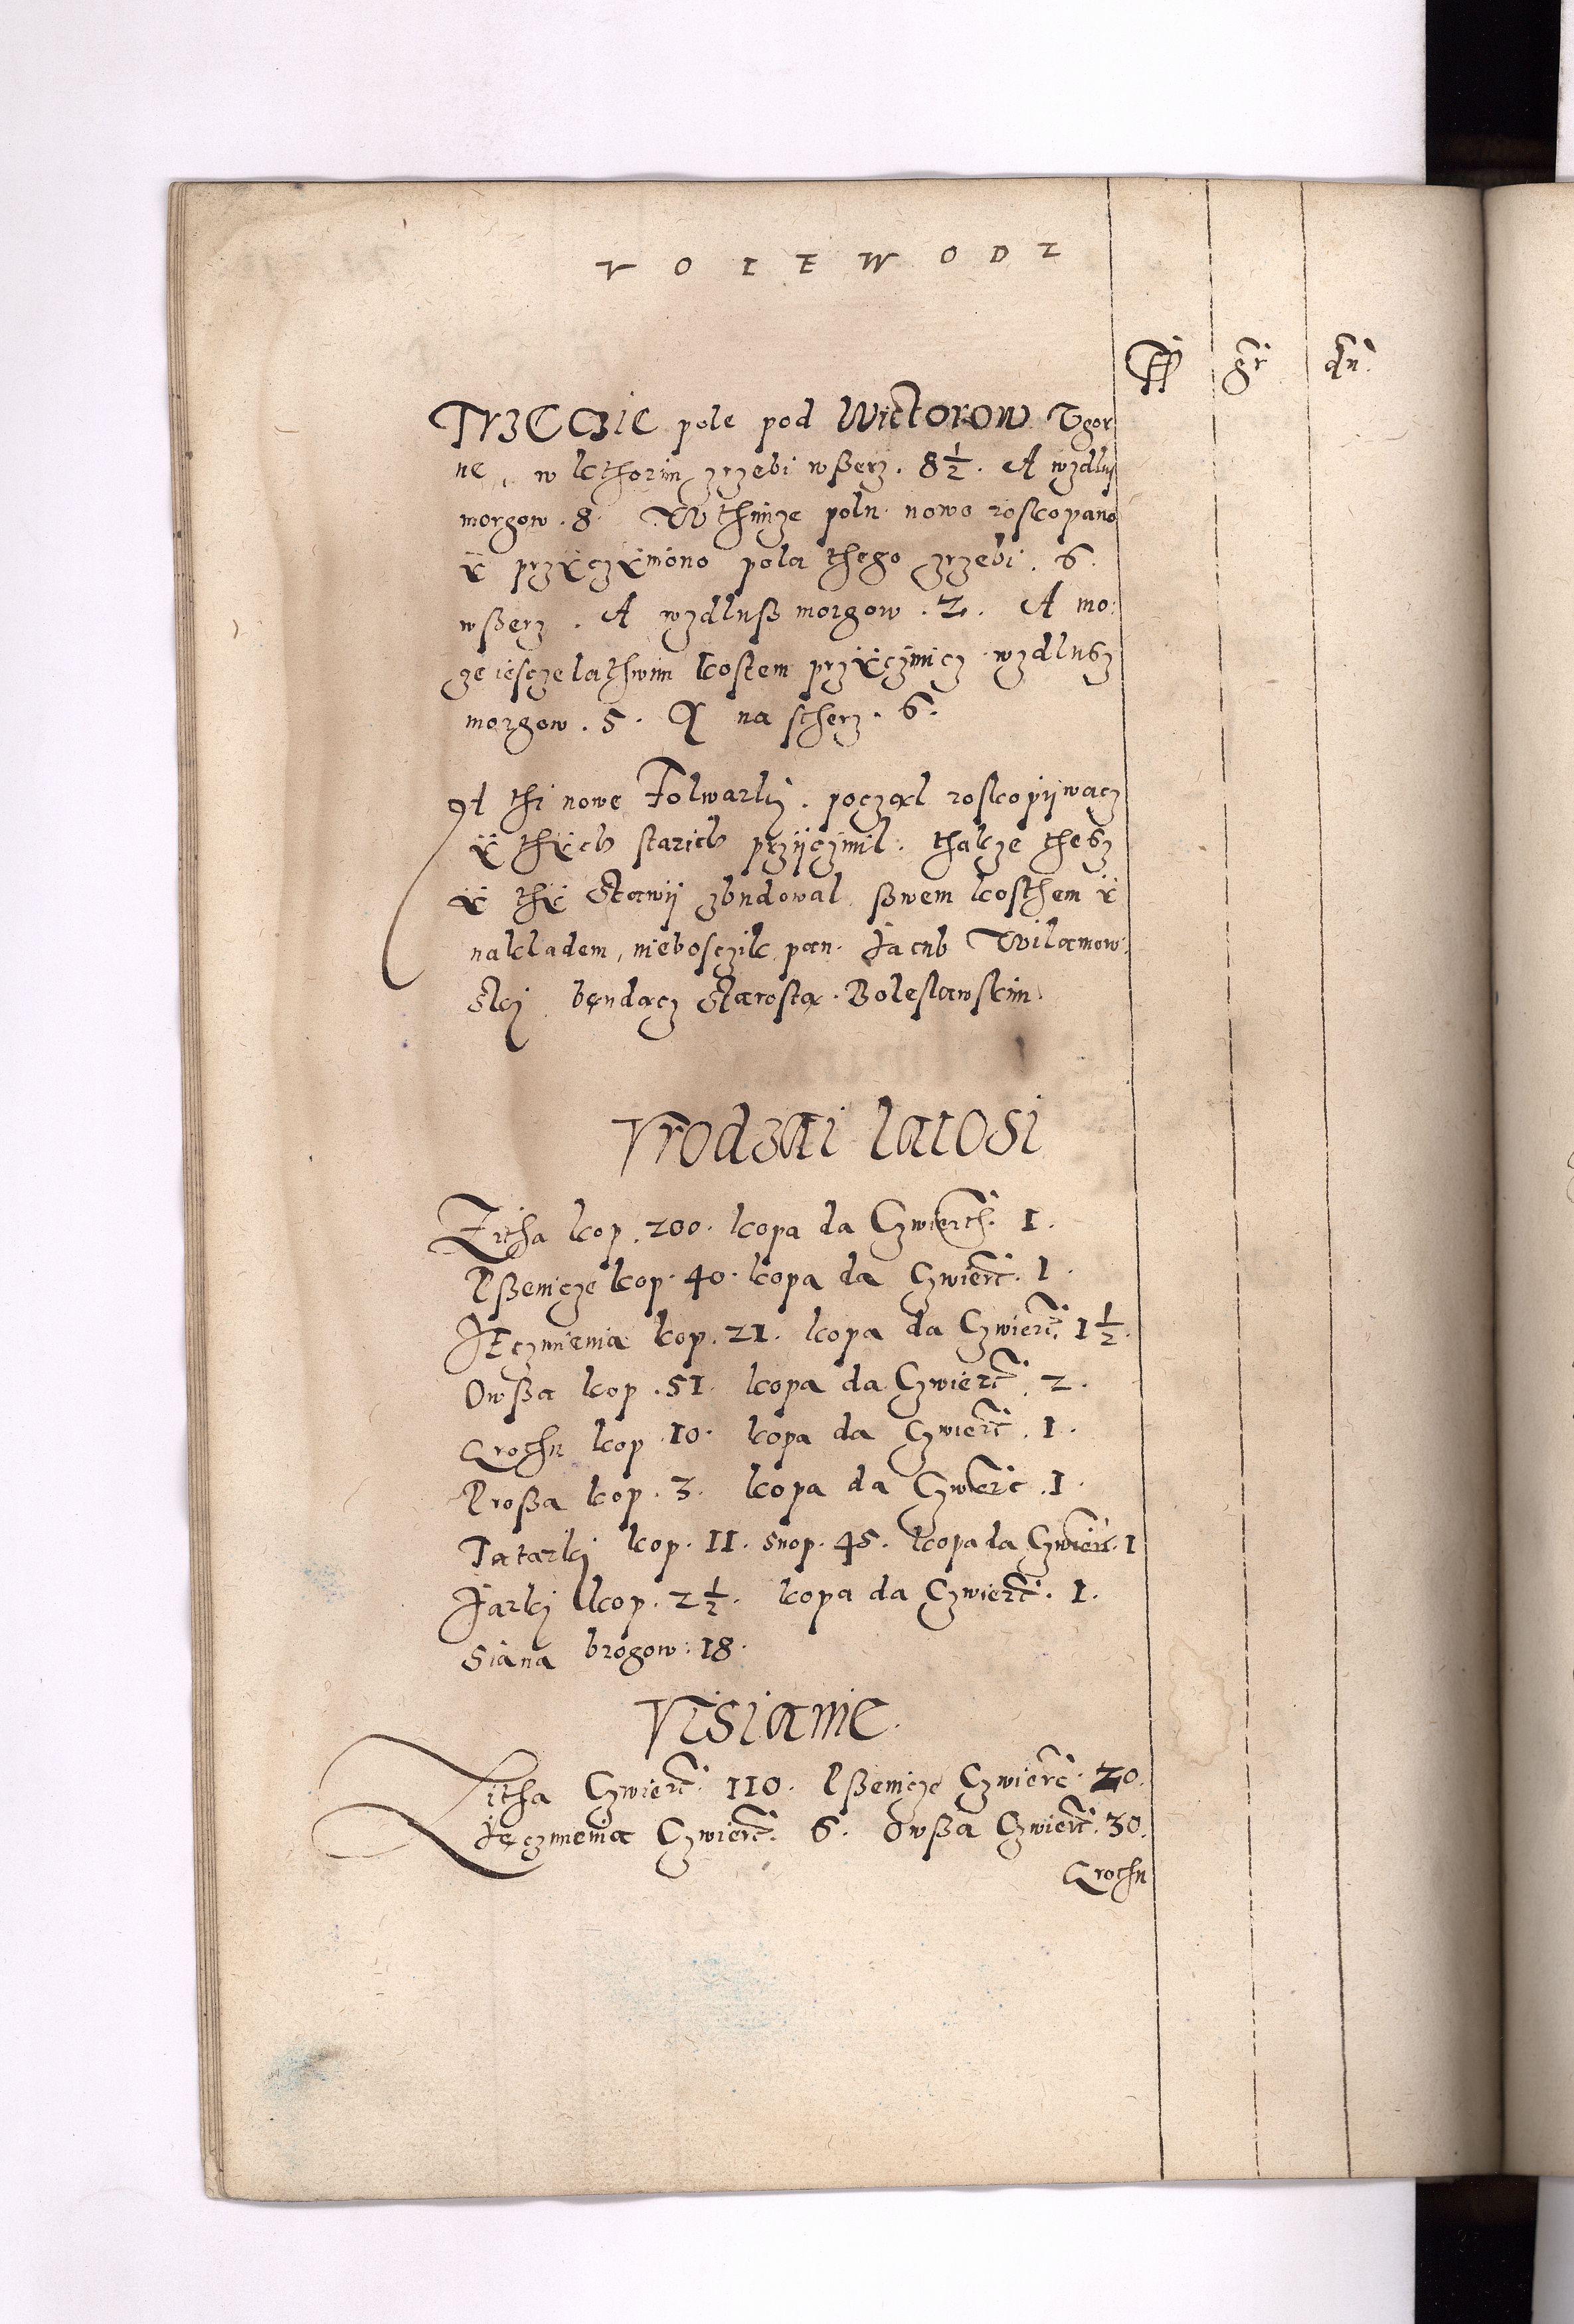 VOIEWODZ
ff gr dn.
TRZECZIE pole pod Wictorow Vgor
ne, w kthorim zrzebi wßerz . 8 1/2 . A wzdlusz
morgow . 8 . W thimze polu nowo roskopano
ÿ przÿczÿniono pola thego zrzebi . 6 .
wßerz . A wzdluß morgow . 2 . A mo:
ze iescze lathwim kostem przÿczinicz wzdlusz
morgow . 5 . Y na scherz . 6 .
A thi nowe Folwarki . począl roskopijwacz
ÿ thÿch starich przijczinil . thakze thesz
ÿ thÿ Stawij zbudowal ßwem koschem ÿ
nakladem, nieboszczik pan Jacub Wilamow
ski bęndącz Starostą Boleslawskim
Vrodzai latosi
Zitha kop . 200 . kopa da Czwierth. 1 .
Pßenicze kop . 40 . kopa da Czwierc . 1 .
JEczmienia kop . 21 . kopa da Czwierc . 1 1/2 .
Owßa kop . 51 . kopa da Czwierc . 2 .
Grochu kop . 10 . kopa da Czwierc . 1 .
Proßa kop . 3 . kopa da Czwierc . 1 .
Tatarki kop . 11 . snop . 45 . kopa da Czwierc . 1
Jarki kop . 2 1/2 . kopa da Czwierc . 1 .
Siana brogow : 18 .
Visianie .
Zitha Czwierc . 110 . Pßenicze Czwierc . 20 .
Jęczmienia Czwierc . 6 . Owßa Czwierc . 30 .
Grochu